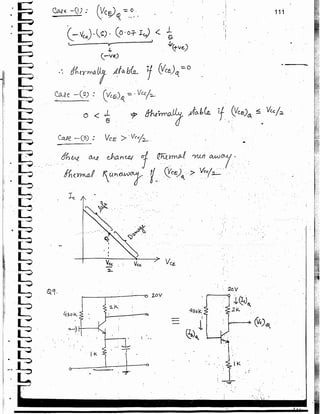 111
Case -(1) : (VCE)Q = 0.
(-Vcc)·(S)·(0.07 Ico) < 1/θ
(-ve) (+ve)
∴ thermally stable if (VCE)Q = 0
Case -(2) : (VCE)Q = Vcc/2
0 < 1/θ ⇒ thermally stable if (VCE)Q ≤ Vcc/2
Case -(3) : VCE > Vcc/2
there are chances of thermal run away.
thermal Runaway if (VCE)Q > Vcc/2
Ic
Safe
Q
Vcc/2 Vcc VCE
Q9.
20V 20V
430K 2K 430K 2K
1K 1K